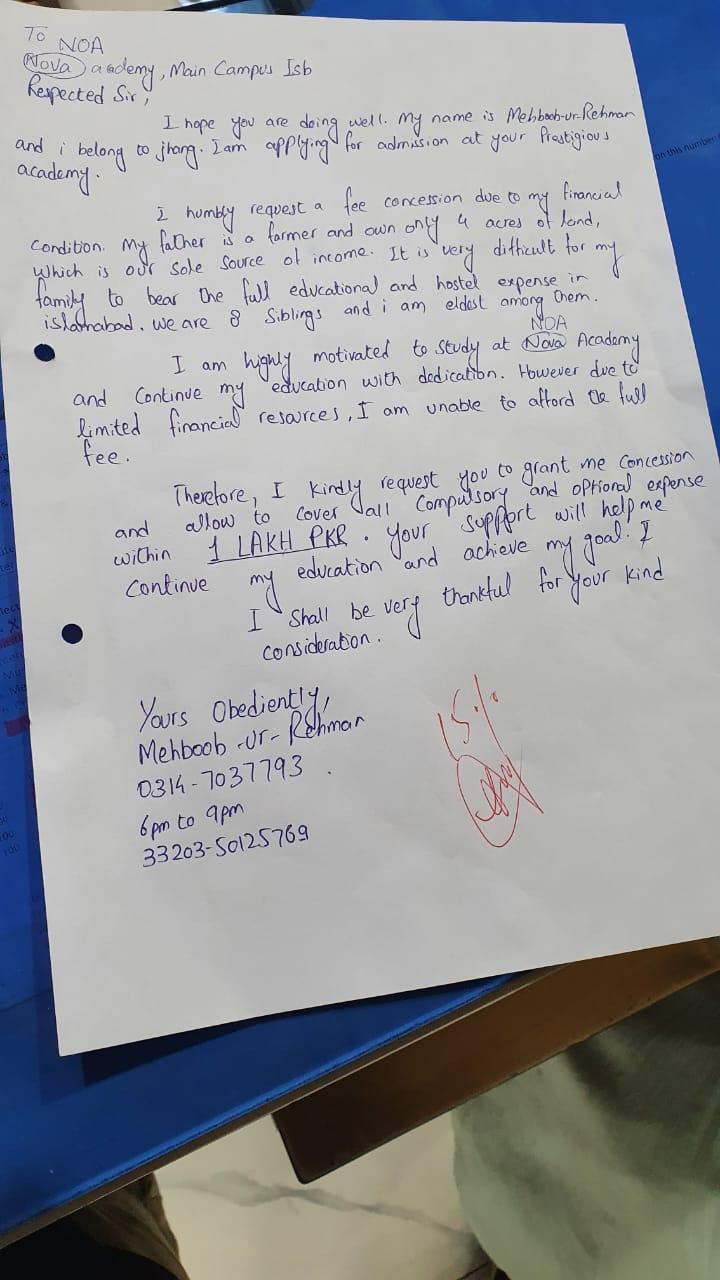 To NOA
Nova academy, Main Campus Isb
Respected Sir,
I hope you are doing well. My name is Mehboob-ur-Rehman
and i belong to jhang. I am applying for admission at your Prestigious
academy.
I humbly request a fee concession due to my financial
Condition. My father is a farmer and own only 4 acres of land,
which is our sole source of income. It is very difficult for my
family to bear the full educational and hostel expense in
islamabad. we are 8 Siblings and i am eldest among them.
NOA
I am highly motivated to study at Nova Academy
and Continue my education with dedication. However due to
limited financial resources, I am unable to afford the full
fee.
Therefore, I Kindly request you to grant me Concession
and allow to cover all Compulsory and optional expense
within 1 LAKH PKR. Your support will help me
Continue my education and achieve my goal. I
I Shall be very thankful for your kind
consideration.
Yours Obediently,
Mehboob-ur-Rehman
0314-7037793
6pm to 9pm
33203-50125769
15%
on this number